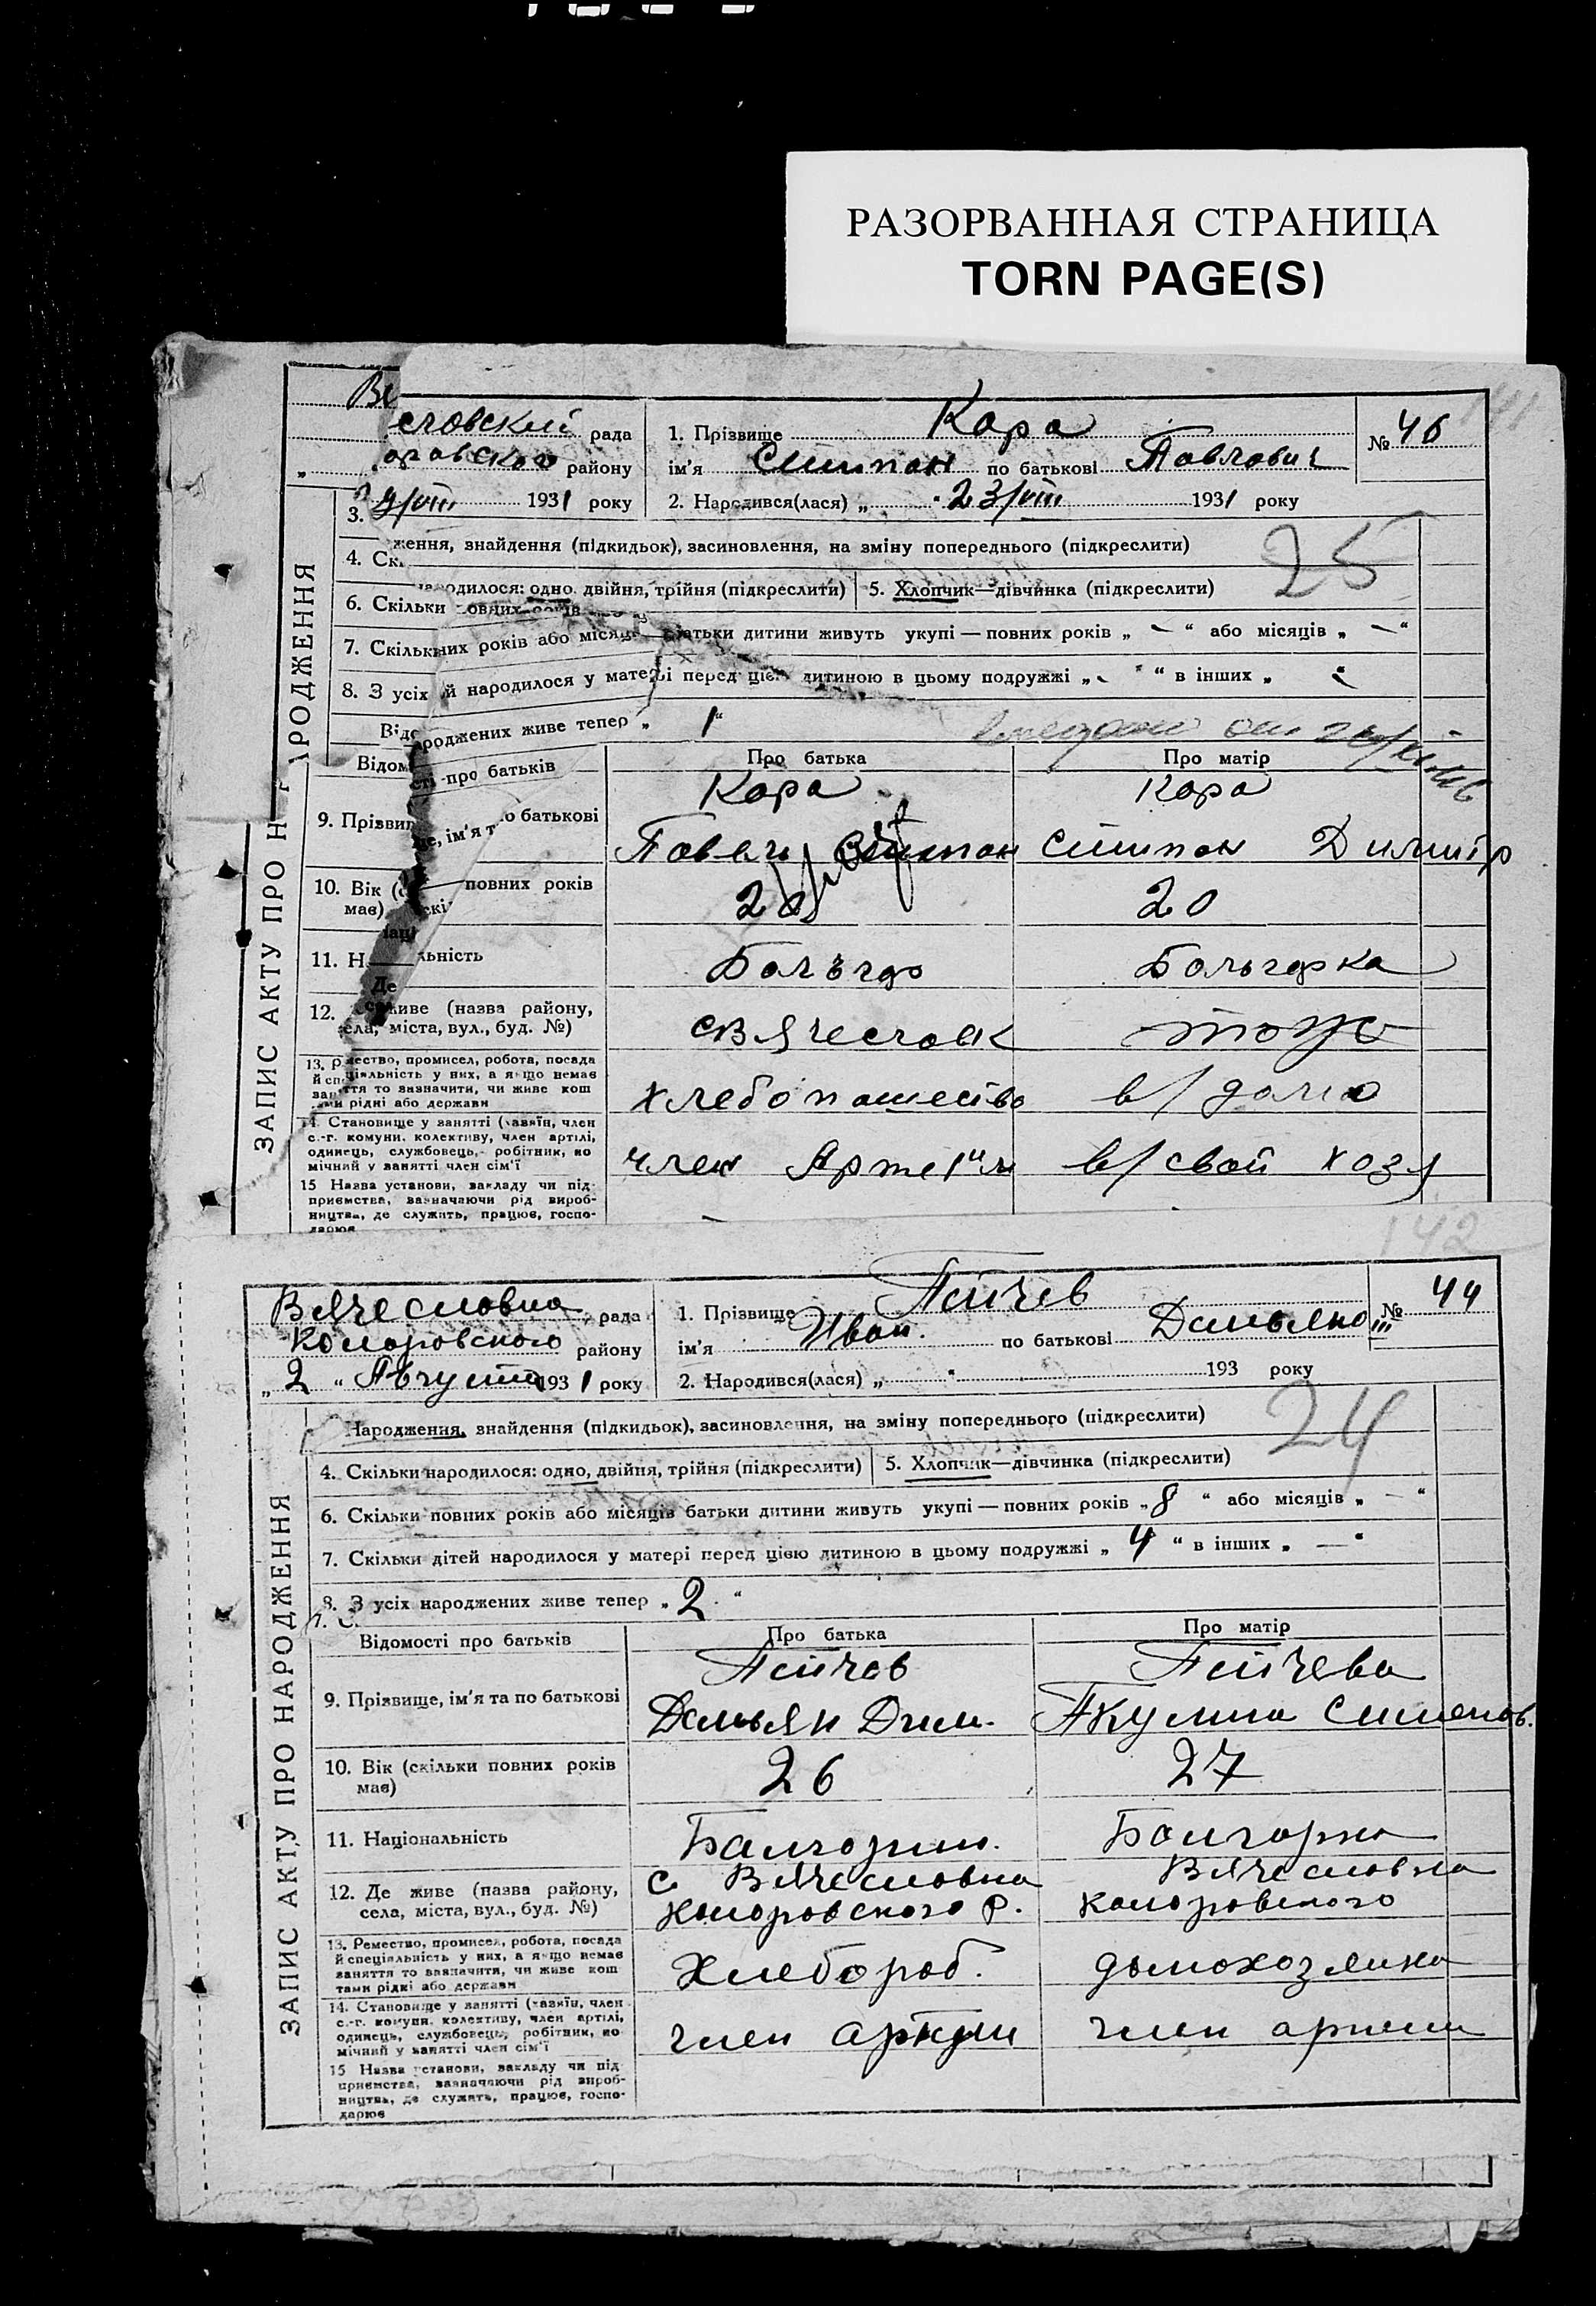 РАЗОРВАННАЯ СТРАНИЦА
TORN PAGE(S)
еловский рада
оравского районy
9/VIII 1931 року
1. Прізвище Кара
ім'я Степан по батькові Павлович
2. Народився(лася) „ 23/VIII 1931 року
№ 46
3.
ження, знайдення (підкидьок), засиновлення, на зміну попереднього (підкреслити)
25
4. Ск
народилося: одно, двійня, трійня (підкреслити)
5. Хлопчик—дівчинка (підкреслити)
6. Скільки
7. Скільки
них років або місяц батьки дитини живуть укупі — повних років „ — “ або місяців „ — “
8. З усіх
й народилося у матері перед цією дитиною в цьому подружжі „ “ в інших „
роджених живе тепер „ 1 “
Відом
сті про батьків
Про батька
Про матір
9. Прізвищ
ще, ім'я т
о батькові
Кара
Кара
Павел Степан
Степан Димитр
10. Вік (
повних років
має)
20
20
11. Н
льність
Болъгар
Больгарка
12.
живе (назва району,
села, міста, вул., буд. №)
с Вячеславк
тоже
13. Р
мество, промисел, робота, посада
й спеціяльність у них, а якщо немає
заняття то зазначити, чи живе кош
тами рідні або держави
хлебопашество
в/ дома
14. Становище у занятті (хазяїн, член
с.-г. комуни, колективу, член артілі,
одинець, службовець, робітник, по
мічний у занятті член сім'ї
член Артели
в/ свой хозя
15 Назва установи, закладу чи під
приємства, зазначаючи рід вироб-
ництва, де служить, працює, госпо-
дарює
ЗАПИС АКТУ ПРО Н
АРОДЖЕННЯ
142
Вячеславка рада
Коларовского району
„ 2 “ Августа 1931 року
1. Прізвище Пейчев
ім'я Иван. по батькові Демьянов
2. Народився(лася) „ “ 193 року
№ 44
Народження, знайдення (підкидьок), засиновлення, на зміну попереднього (підкреслити)
24
4. Скільки народилося: одно, двійня, трійня (підкреслити)
5. Хлопчик—дівчинка (підкреслити)
6. Скільки повних років або місяців батьки дитини живуть укупі — повних років „ 8 “ або місяців „ — “
7. Скільки дітей народилося у матері перед цією дитиною в цьому подружжі „ 4 “ в інших „ — “
8. З усіх народжених живе тепер „ 2 “
Відомості про батьків
Про батька
Про матір
9. Прізвище, ім'я та по батькові
Пейчев
Пейчева
Демьян Дим.
Акулина Семенов.
10. Вік (скільки повних років
має)
26
27
11. Національність
Балгарин.
Болгарка
12. Де живе (назва району,
села, міста, вул., буд. №)
с Вячеславка
Коларовского Р.
Вячеславка
Коларовского
13. Ремество, промисел, робота, посада
й спеціяльність у них, а якщо немає
заняття то зазначити, чи живе кош
тами рідні або держави
Хлебороб.
домохозяика
14. Становище у занятті (хазяїн, член
с.-г. комуни, колективу, член артілі,
одинець, службовець, робітник, по
мічний у занятті член сім'ї
член артели
член артели
15 Назва установи, закладу чи під
приємства, зазначаючи рід вироб-
ництва, де служить, працює, госпо-
дарює
ЗАПИС АКТУ ПРО НАРОДЖЕННЯ